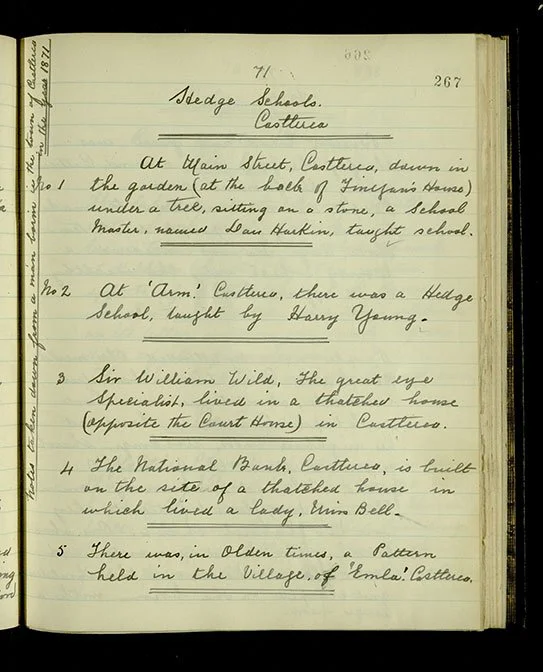 71
267
Hedge Schools.
Castlerea
No 1 At Main Street, Castlerea, down in
the garden (at the back of Finigan's House)
under a tree, sitting on a stone, a School
Master, named Dan Harkin, taught school.
No 2 At 'Arm'. Castlerea, there was a Hedge
School, taught by Harry Young.
3 Sir William Wild, The great eye
Specialist, lived in a thatched house
(opposite the Court House) in Castlerea.
4 The National Bank, Castlerea, is built
on the site of a thatched house in
which lived a lady, Miss Bell.
5 There was, in Olden times, a Pattern
held in the Village, of 'Emla'. Castlerea.
Notes taken down from a man born in the town of Castlerea
in the year 1871